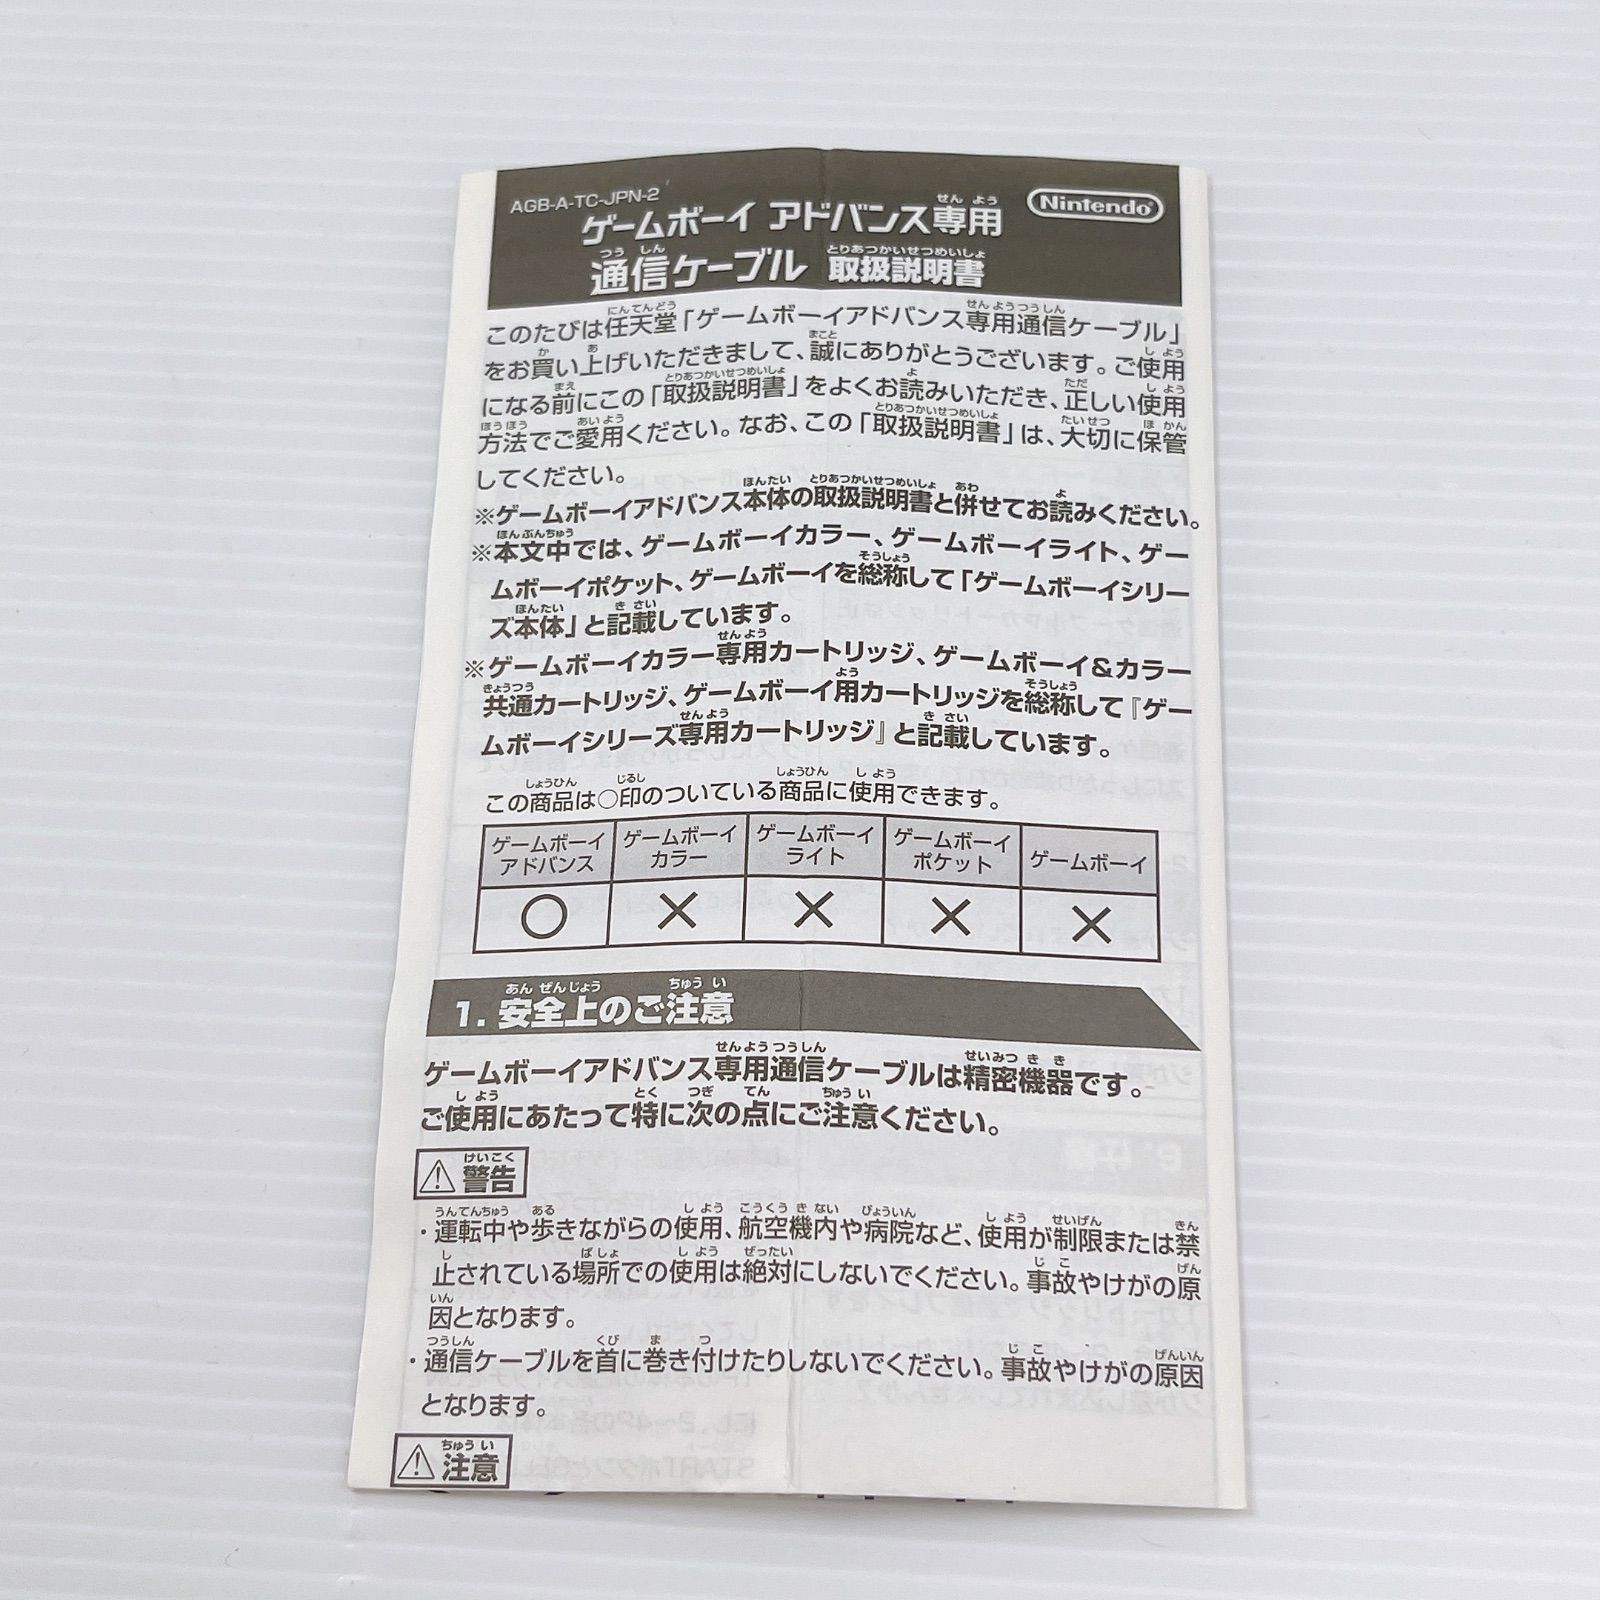 AGB-A-TC-JPN-2
Nintendo
ゲームボーイ アドバンス専用
通信ケーブル 取扱説明書
このたびは任天堂「ゲームボーイアドバンス専用通信ケーブル」
をお買い上げいただきまして、誠にありがとうございます。ご使用
になる前にこの「取扱説明書」をよくお読みいただき、正しい使用
方法でご愛用ください。なお、この「取扱説明書」は、大切に保管
してください。
※ゲームボーイアドバンス本体の取扱説明書と併せてお読みください。
※本文中では、ゲームボーイカラー、ゲームボーイライト、ゲー
ムボーイポケット、ゲームボーイを総称して「ゲームボーイシリー
ズ本体」と記載しています。
※ゲームボーイカラー専用カートリッジ、ゲームボーイ&カラー
共通カートリッジ、ゲームボーイ用カートリッジを総称して『ゲー
ムボーイシリーズ専用カートリッジ』と記載しています。
この商品は○印のついている商品に使用できます。
ゲームボーイ アドバンス ゲームボーイ カラー ゲームボーイ ライト ゲームボーイ ポケット ゲームボーイ
○ × × × ×
1. 安全上のご注意
ゲームボーイアドバンス専用通信ケーブルは精密機器です。
ご使用にあたって特に次の点にご注意ください。
⚠警告
・運転中や歩きながらの使用、航空機内や病院など、使用が制限または禁
止されている場所での使用は絶対にしないでください。事故やけがの原
因となります。
・通信ケーブルを首に巻き付けたりしないでください。事故やけがの原因
となります。
⚠注意